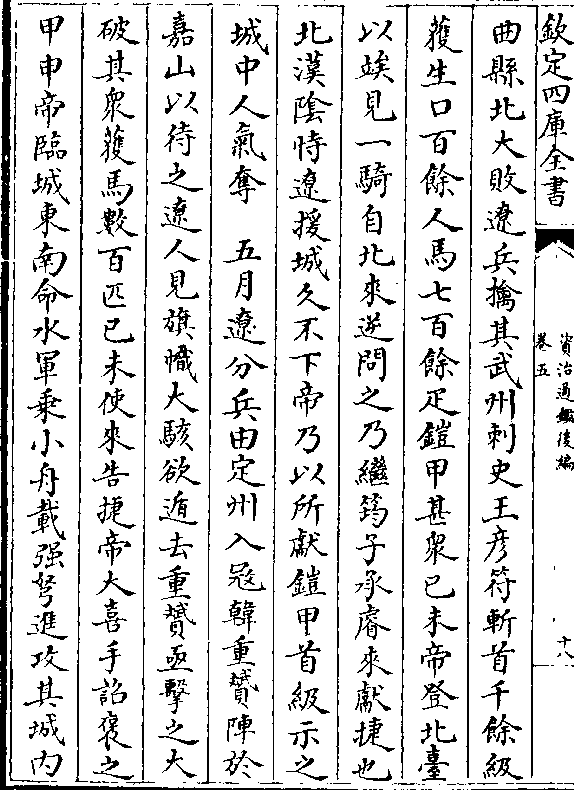 欽定四庫全書
資治通鑑後編
卷五
十八
曲縣北大敗遼兵擒其武州刺史王彦符斬首千餘級
獲生口百餘人馬七百餘疋鎧甲甚衆已未帝登北臺
以竢見一騎自北來逆問之乃繼筠子承睿來獻捷也
北漢陰恃遼援城久不下帝乃以所獻鎧甲首級示之
城中人氣奪　五月遼分兵由定州入冦韓重贇陣於
嘉山以待之遼人見旗幟大駭欲遁去重贇亟擊之大
破其衆獲馬數百匹已未使來告捷帝大喜手詔褒之
甲申帝臨城東南命水軍乗小舟載强弩進攻其城内